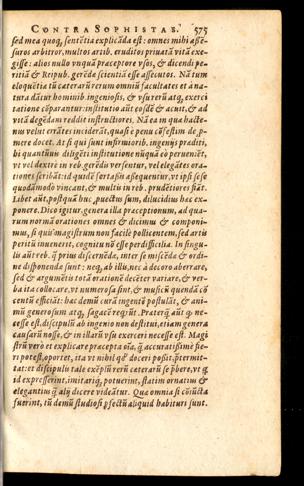 CONTRA SOPHISTAS. 575
sed mea quoq, sentētia explicāda est: omnes mihi asse-
suros arbitror, multos artib. eruditos priuatā vitā exe-
gisse: alios nullo vnquā præceptore vsos, & dicendi pe-
ritiā & Reipub. gerēdæ scientiā esse assecutos. Nā tum
eloquētia tū cæterarū rerum omniū facultates et à na-
tura dātur hominib. ingeniosis, & vsu rerū atq, exerci
tatione cōparantur: institutio aūt eosdē & acuit, & ad
vitā degēdam reddit instructiores. Nā ea in qua hacte-
nus velut errātes inciderāt, quasi è penu cūfestim de pro
mere docet. At si qui sunt infirmiorib. ingenijs prediti,
hi quantūuis diligēti institutione nūquā eò perueniēt,
vt vel dextrè in reb. gerēdis versentur, vel elegātes ora-
tiones scribāt: id quidē fortasis assequentur, vt ipsi sese
quodāmodo vincant, & multis in reb. prudētiores fiāt.
Libet aūt, postquā huc prouectus sum, dilucidius hæc ex-
ponere. Dico igitur, genera illa præceptionum, ad qua-
rum normā orationes omnes & dicimus & componi-
mus, si quis magistrum non facilè pollicentem, sed artis
peritū inuenerit, cognitu nō esse perdifficilia. In singu-
lis aūt reb. quæ prius discernēda, inter se miscēda & ordi-
ne disponenda sunt: neq, ab illis, nec à decoro aberrare,
sed & argumētis totā orationē decēter variare, & ver-
ba ita collocare, vt numerosa sint, & musicū quendā cō
centū efficiāt: hæc demū curā ingentē postulāt, & ani-
mū generosum atq, sagacē requirūt. Præterquā aūt q ne-
cesse est, discipulū ab ingenio non destitui, etiam genera
causarū nosse, & in illarū vsu exerceri necesse est. Magi
strū vero et explicare præcepta oīa, quā accuratissimè fie-
ri potest, oportet, ita vt nihil quod doceri possit prætermit-
tat: et discipulis tale exēplū rerū cæterarū se præbere, vt qui
id expresserint, imitariq, potuerint, statim ornatius &
elegantius quā alij dicere videātur. Quæ omnia si cōiūcta
fuerint, tū demū studiosi perfectū aliquid habituri sunt.